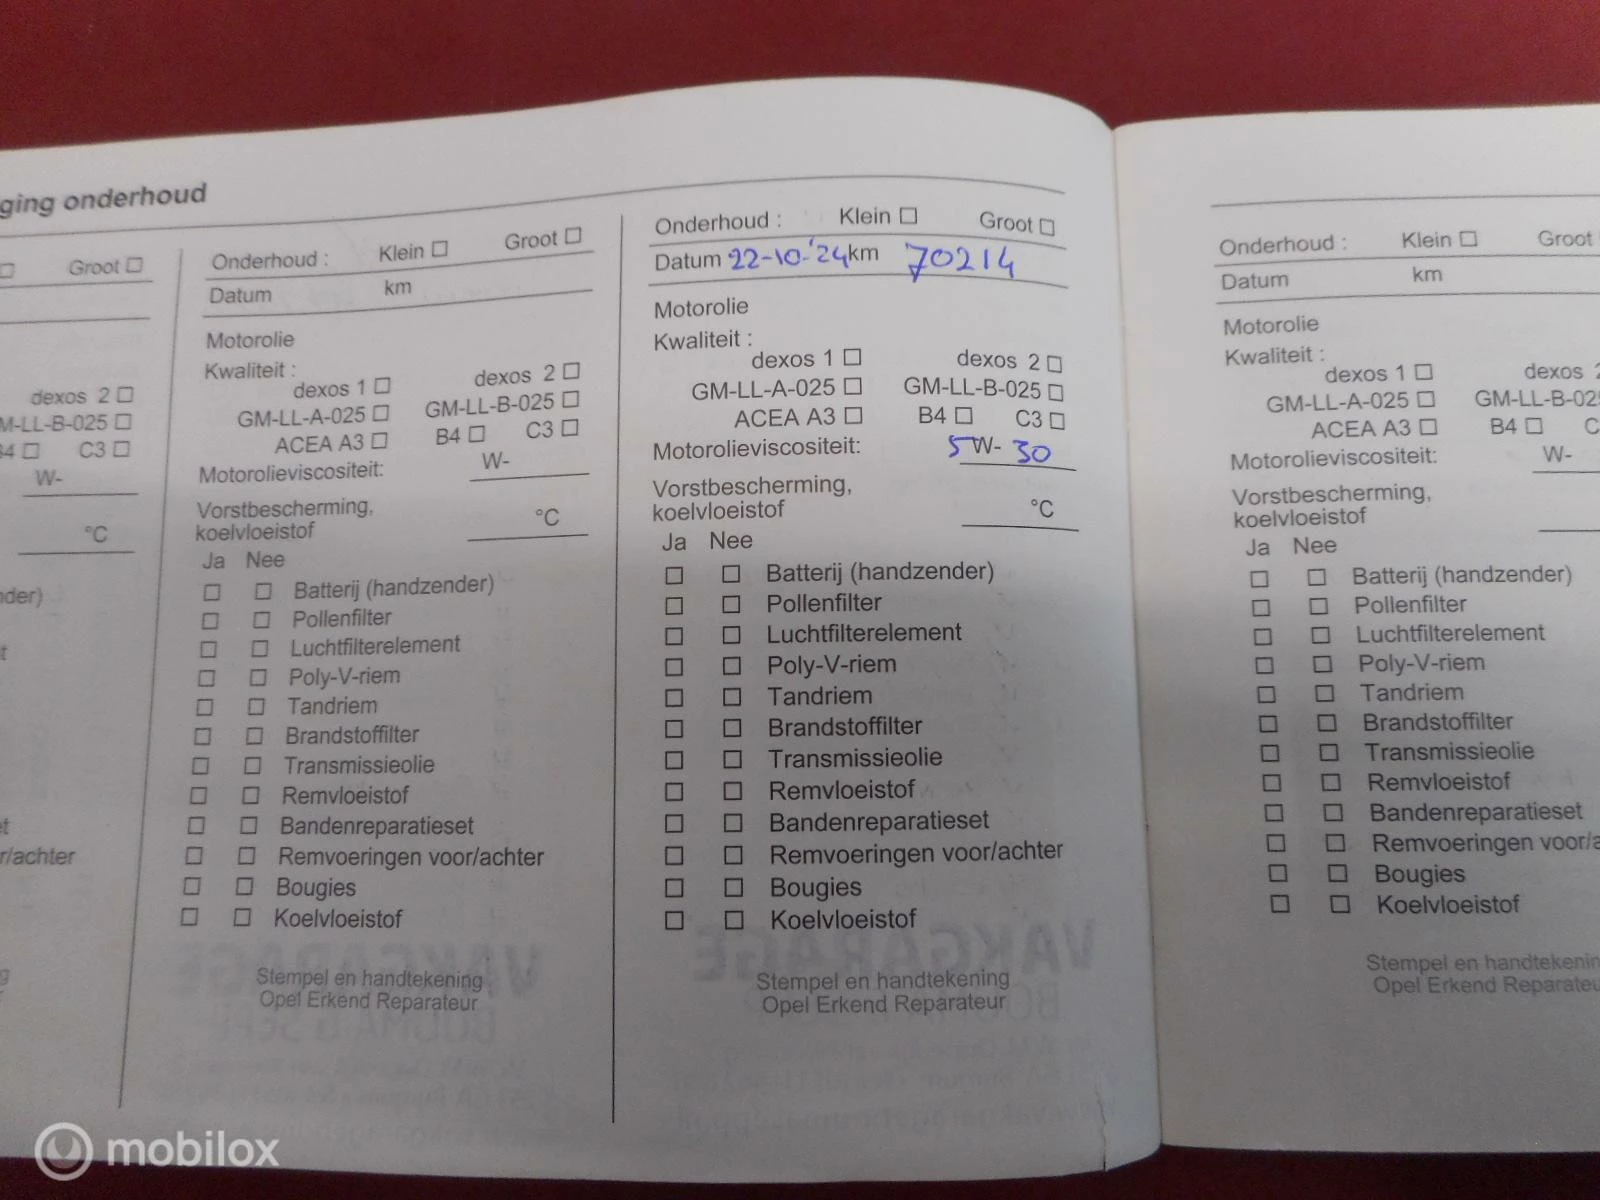 ging onderhoud
Groot
dexos 2
M-LL-B-025
B4 C3
W-
°C
nder)
r/achter
Onderhoud : Klein Groot
Datum km
Motorolie
Kwaliteit :
dexos 1 dexos 2
GM-LL-A-025 GM-LL-B-025
ACEA A3 B4 C3
Motorolieviscositeit: W-
Vorstbescherming,
koelvloeistof °C
Ja Nee
Batterij (handzender)
Pollenfilter
Luchtfilterelement
Poly-V-riem
Tandriem
Brandstoffilter
Transmissieolie
Remvloeistof
Bandenreparatieset
Remvoeringen voor/achter
Bougies
Koelvloeistof
Stempel en handtekening
Opel Erkend Reparateur
Onderhoud : Klein Groot
Datum 22-10-'24 km 70214
Motorolie
Kwaliteit :
dexos 1 dexos 2
GM-LL-A-025 GM-LL-B-025
ACEA A3 B4 C3
Motorolieviscositeit: 5W-30
Vorstbescherming,
koelvloeistof °C
Ja Nee
Batterij (handzender)
Pollenfilter
Luchtfilterelement
Poly-V-riem
Tandriem
Brandstoffilter
Transmissieolie
Remvloeistof
Bandenreparatieset
Remvoeringen voor/achter
Bougies
Koelvloeistof
Stempel en handtekening
Opel Erkend Reparateur
Onderhoud : Klein Groot
Datum km
Motorolie
Kwaliteit :
dexos 1 dexos 2
GM-LL-A-025 GM-LL-B-02
ACEA A3 B4 C
Motorolieviscositeit: W-
Vorstbescherming,
koelvloeistof
Ja Nee
Batterij (handzender)
Pollenfilter
Luchtfilterelement
Poly-V-riem
Tandriem
Brandstoffilter
Transmissieolie
Remvloeistof
Bandenreparatieset
Remvoeringen voor/a
Bougies
Koelvloeistof
Stempel en handtekenin
Opel Erkend Reparateu
mobilox